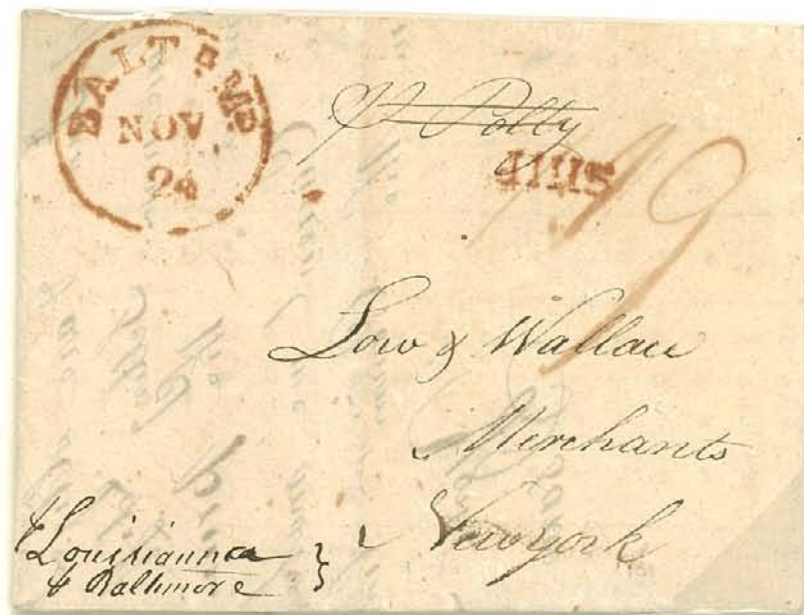 BALT MD
NOV
24
pr Polly
SHIP
19
Low & Wallace
Merchants
New york
Louisiannca
& Baltimore